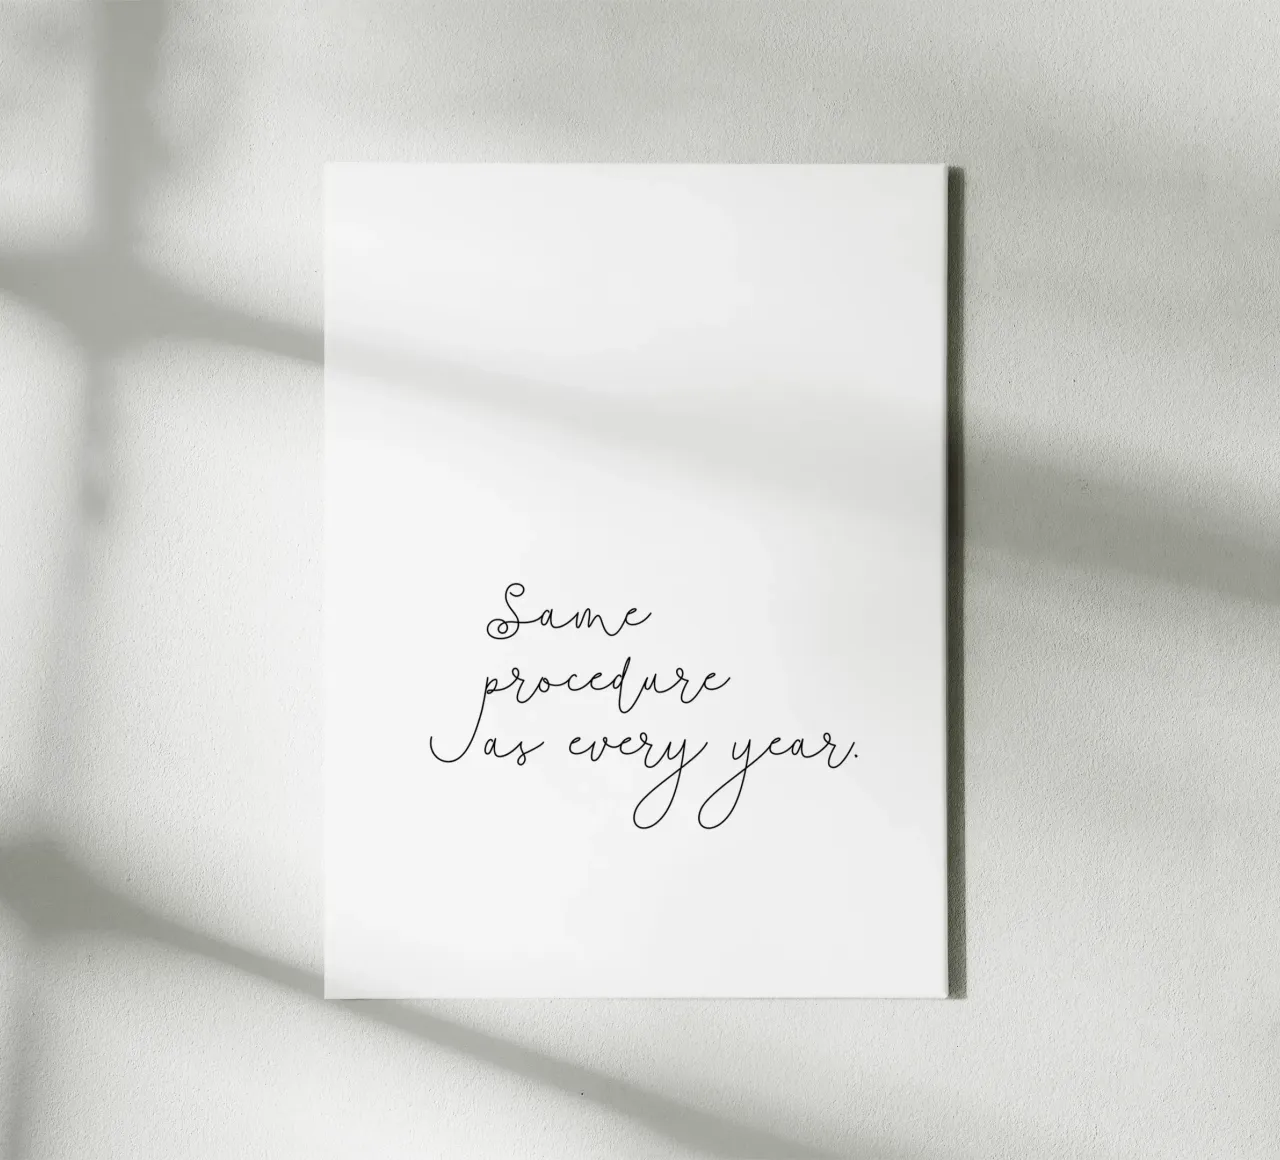 Same
procedure
as every year.